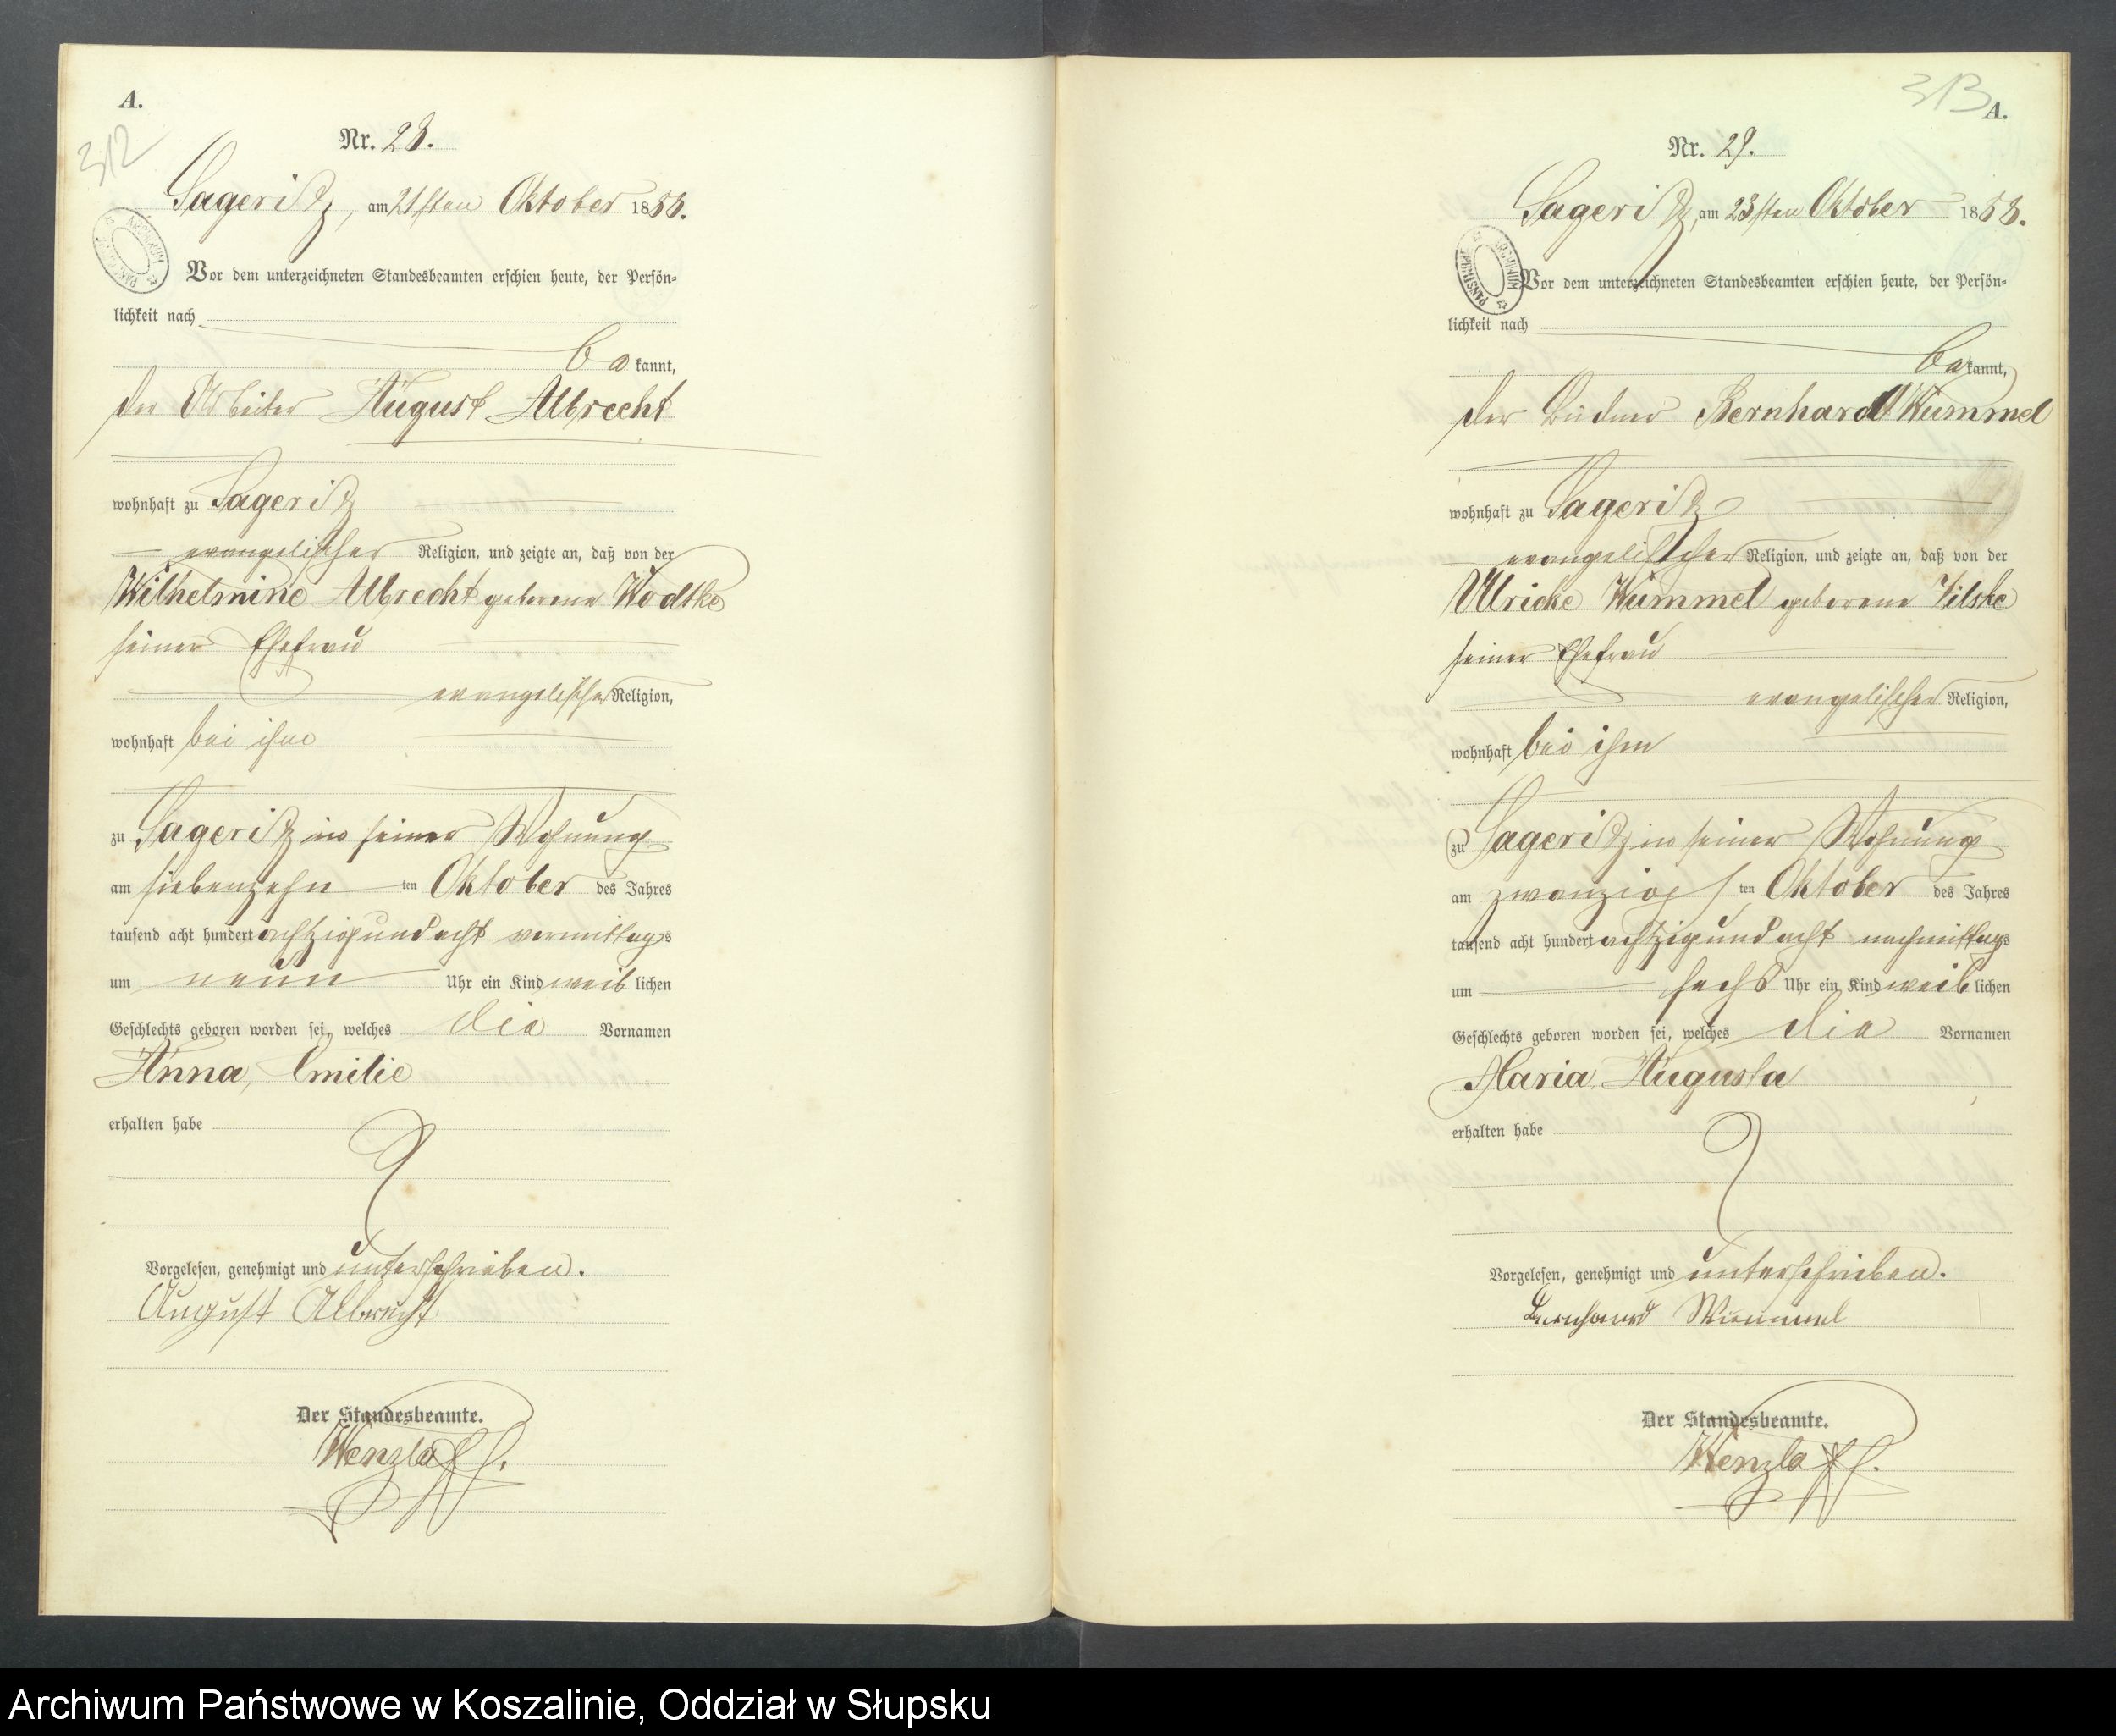 A.
312
Nr. 28.
Sageritz, am 21sten Oktober 1888.
Vor dem unterzeichneten Standesbeamten erschien heute, der Persön-
lichkeit nach
be kannt,
der Arbeiter August Albrecht
wohnhaft zu Sageritz
evangelischer Religion, und zeigte an, daß von der
Wilhelmine Albrecht geborene Wodtke
seiner Ehefrau
evangelischer Religion,
wohnhaft bei ihm
zu Sageritz in seiner Wohnung
am siebenzehn ten Oktober des Jahres
tausend acht hundert achtzigundacht vormittags
um neun Uhr ein Kind weib lichen
Geschlechts geboren worden sei, welches die Vornamen
Anna, Emilie
erhalten habe
Vorgelesen, genehmigt und unterschrieben.
August Albrecht
Der Standesbeamte.
Wenzlaff.
313
A.
Nr. 29.
Sageritz, am 23sten Oktober 1888.
Vor dem unterzeichneten Standesbeamten erschien heute, der Persön-
lichkeit nach
be kannt,
der Büdner Bernhard Wümmel
wohnhaft zu Sageritz
evangelischer Religion, und zeigte an, daß von der
Ulricke Wümmel geborene Vilske
seiner Ehefrau
evangelischer Religion,
wohnhaft bei ihm
zu Sageritz in seiner Wohnung
am zwanzigs ten Oktober des Jahres
tausend acht hundert achtzigundacht nachmittags
um sechs Uhr ein Kind weib lichen
Geschlechts geboren worden sei, welches die Vornamen
Maria Augusta
erhalten habe
Vorgelesen, genehmigt und unterschrieben.
Bernhard Wümmel
Der Standesbeamte.
Wenzlaff.
Archiwum Państwowe w Koszalinie, Oddział w Słupsku